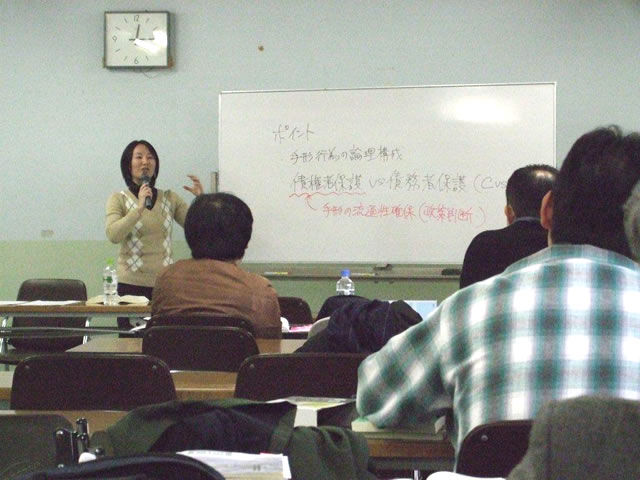 ポイント
・手形行為の論理構成
債権者保護 VS 債務者保護 (Cvs
手形の流通性確保(政策判断)